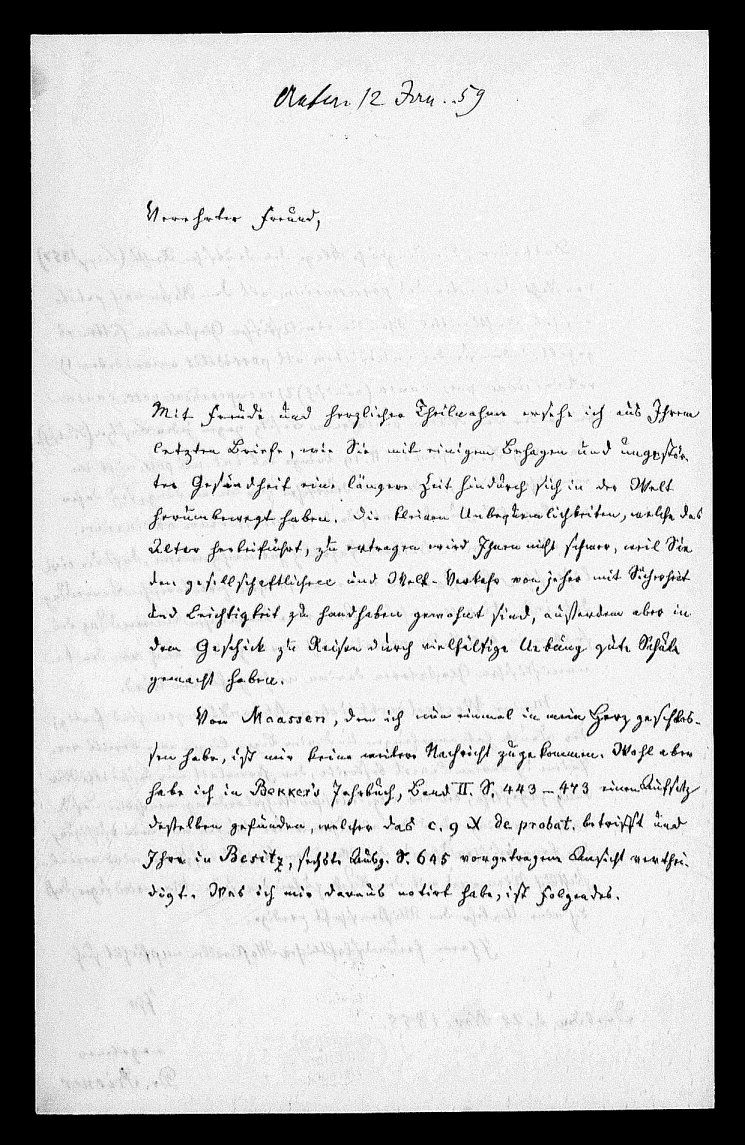 12 Jan. 59
Verehrter Freund,
Mit Freude und herzlicher Theilnahme ersehe ich aus Ihrem
letzten Briefe, wie Sie mit einigem Behagen und ungestör-
ter Gesundheit eine längere Zeit hindurch sich in der Welt
herumbewegt haben. Die kleinen Unbequemlichkeiten, welche das
Alter herbeiführt, zu ertragen wird Ihnen nicht schwer, weil Sie
den gesellschaftlichen und Welt-Verkehr von jeher mit Sicherheit
und Leichtigkeit zu handhaben gewohnt sind, außerdem aber in
dem Geschick zu Reisen durch vielfältige Uebung gute Schule
gemacht haben.
Von Maassen, den ich nun einmal in mein Herz geschlos-
sen habe, ist mir keine weitere Nachricht zugekommen. Wohl aber
habe ich in Bekker's Jahrbuch, Band II. S. 443-473 einen Aufsatz
desselben gefunden, welcher das c. 9 X de probat. betrifft und
Ihre in Besitz, sechste Ausg. S. 645 vorgetragene Ansicht verthei-
digt. Was ich mir daraus notirt habe, ist Folgendes.